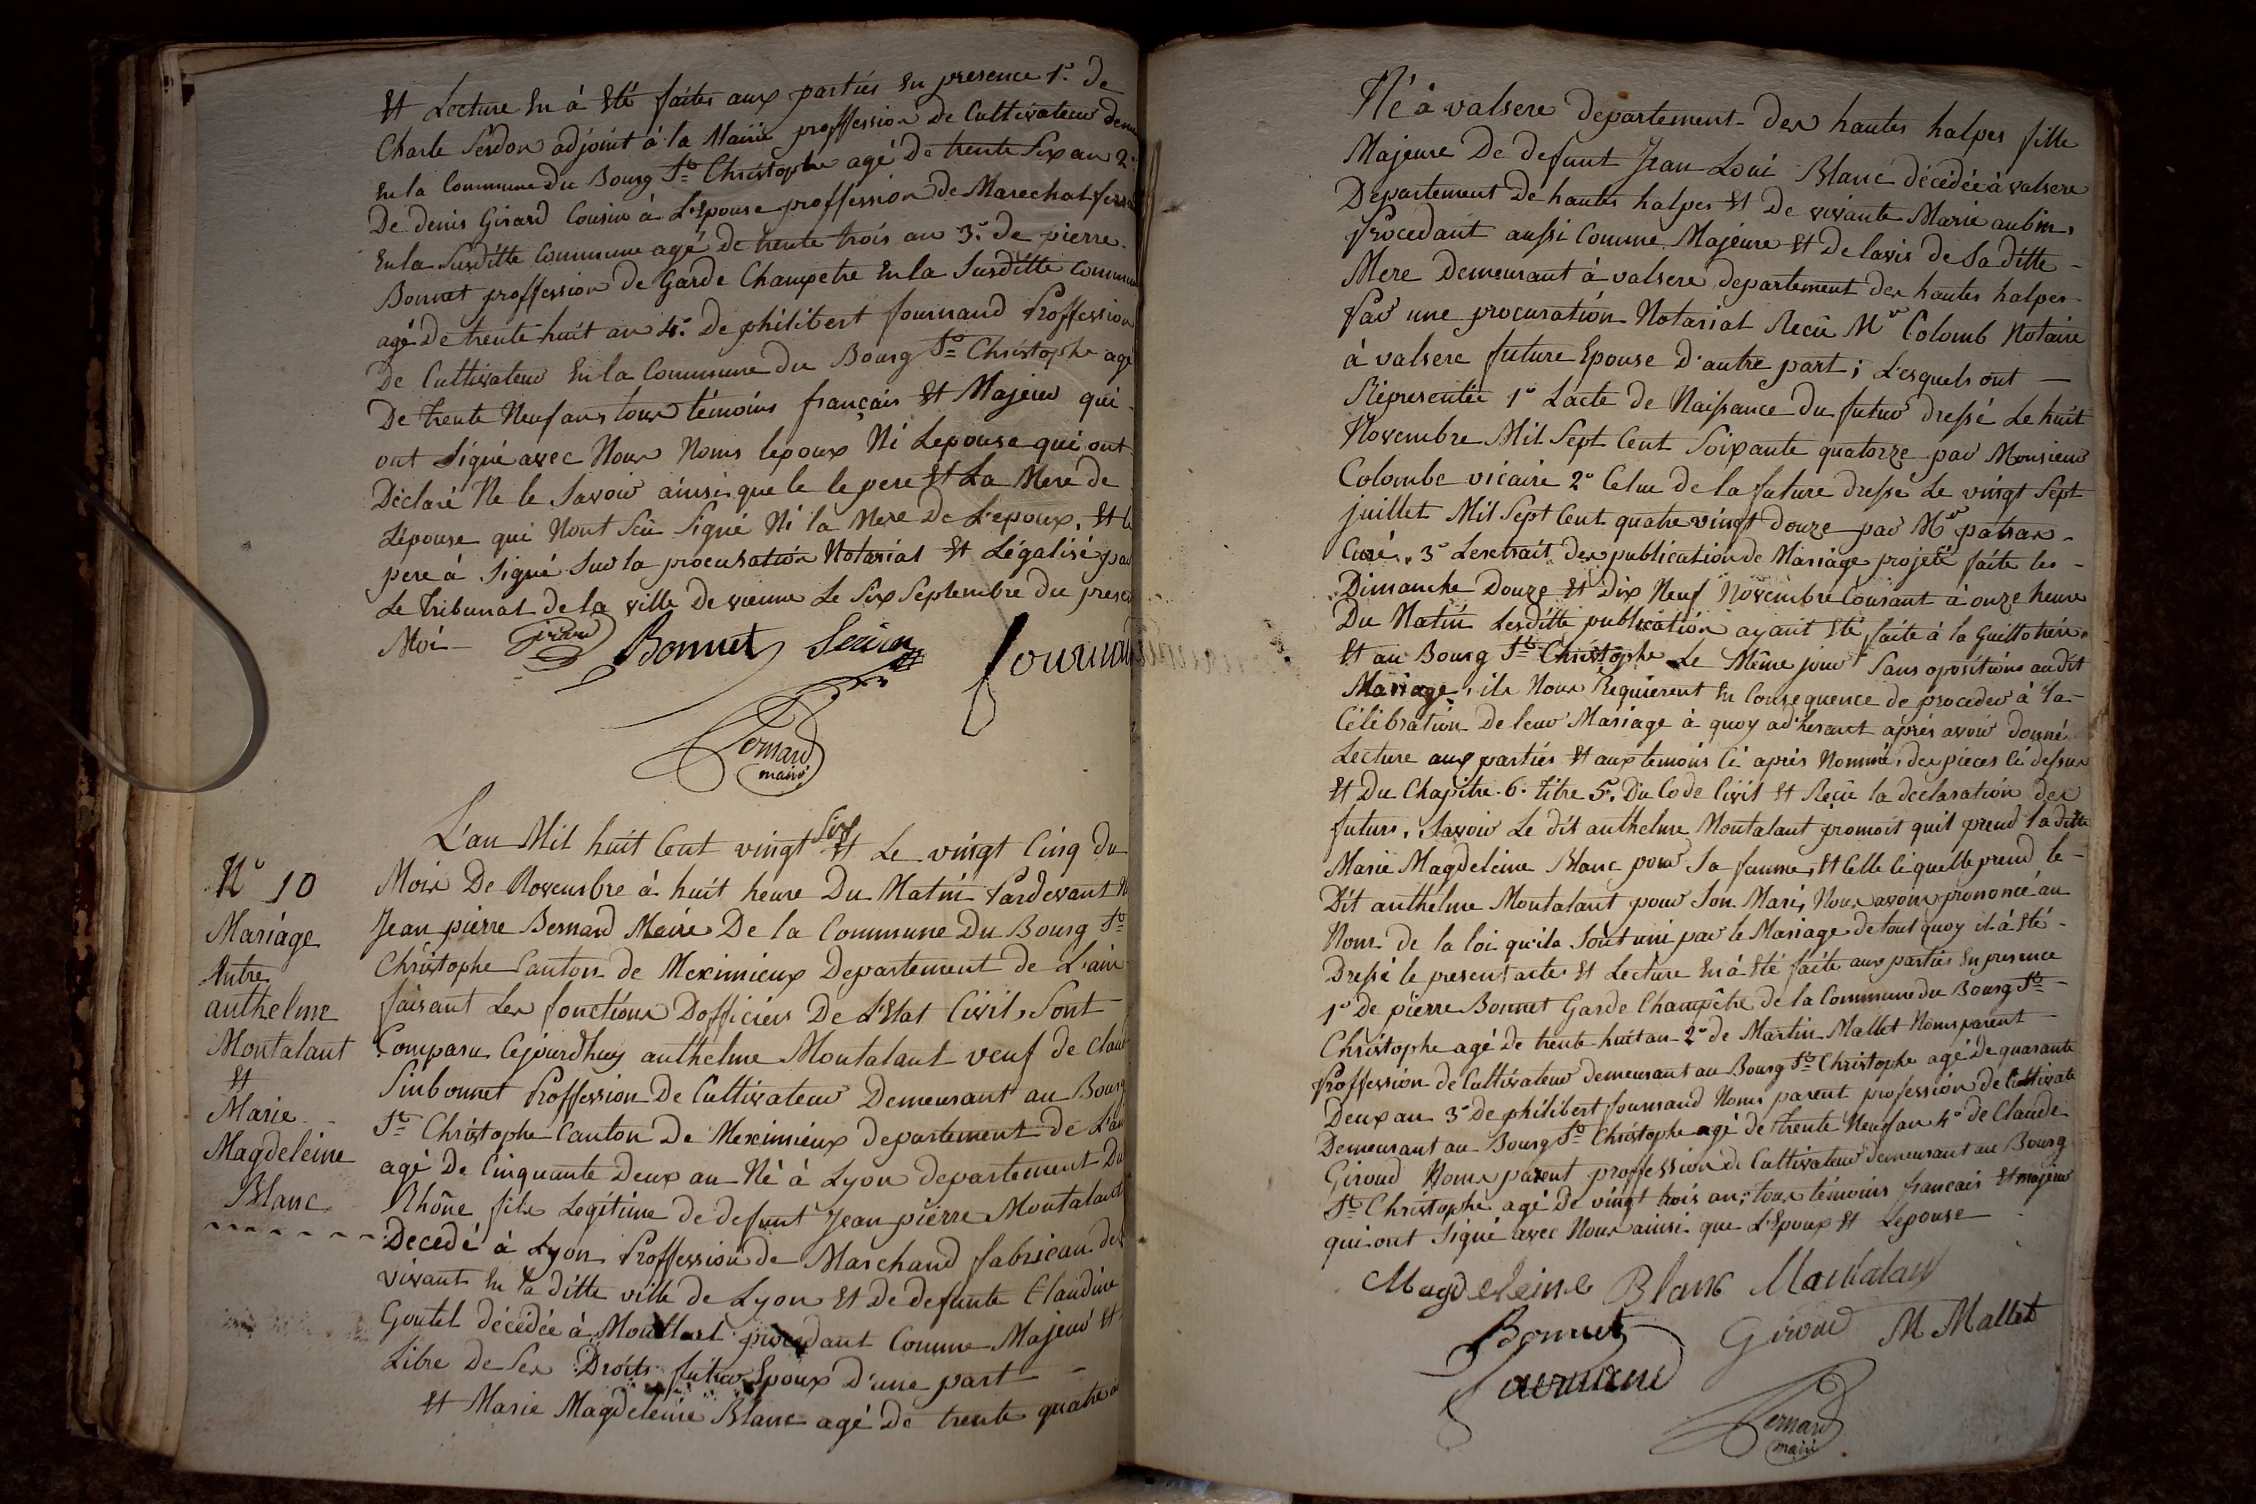 Et Lecture En à Eté faites aux parties En presence 1.° de
Charle Serdon adjoint à la Mairie proffession De Cultivateur
En la Commune du Bourg St Christophe agé De trente Six an 2.°
De denis Girard Cousin à L'Epouse proffession de Marechal
En la Susditte Commune agé de trente trois an 3.° de pierre
Bonnet proffession de Garde Champetre En la Susditte Commune
agé De trente huit an 4.° De philibert fournand Proffession
De Cultivateur En la Commune du Bourg St Christophe agé
De trente Neuf ans tous témoins français Et Majeur qui
ont Signé avec Nous Noms lepoux Ni Lepouse qui ont
Déclaré Ne le Savoir ainsi que le le pere Et La Mere de
Lépouse qui Nont Sçu Signé Ni la Mere De L'epoux, Et le
pere à Signé Sur la procuration Notarial Et Légalisé par
Le Tribunal de la ville De vienne Le Six Septembre du present
Moi
Girard Bonnet Serdon fournand
Bernard
maire
L'an Mil huit Cent vingt Six Et Le vingt Cinq du
N° 10
Mariage
Entre
anthelme
Montalant
Et
Marie
Magdeleine
Blanc
Moix De Novembre à huit heure Du Matin Pardevant
Jean pierre Bernard Maire De la Commune Du Bourg St
Christophe Canton de Meximieux Departement de L'ain
faisant Les fonctions Dofficiers De L'Etat Civil, Sont
Comparu Cejourdhuy anthelme Montalant veuf de Claud
Sinbonnet Proffession De Cultivateur Demeurant au Bourg
St Christophe Canton De Meximieux departement de L'ain
agé De Cinquante Deux an Né à Lyon departement Du
Rhône fils Legitime de defunt Jean pierre Montalant
Decedé à Lyon Proffession de Marchand fabrican de
vivant En la ditte ville de Lyon Et De defunte Claudine
Goutel décédée à procedant Comme Majeur Et
Libre De Ses Droits futur Epoux D'une part
Et Marie Magdeleine Blanc agé De trente quatre
Né à valsere departement des hautes halpes fille
Majeure De defunt Jean Loui Blanc décédée à valsere
Departement De hautes halpes Et De vivante Marie aubin,
Procedant aussi Comme Majeure Et De lavis de Sa ditte
Mere Demeurant à valsere departement des hautes halpes
Par une procuration Notarial Reçu Mr Colomb Notaire
à valsere future Epouse D'autre part; Lesquels ont
Representée 1° Lacte de Naissance du futur dressé Le huit
Novembre Mil Sept Cent Soixante quatorze par Monsieur
Colombe vicaire 2° Celui de la future dresse Le vingt Sept
juillet Mil Sept Cent quatre vingt douze par Mr
Curé, 3° Lextrait des publication de Mariage projeté faite les
Dimanche Douze Et Dix Neuf Novembre Courant à onze heure
Du Matin Lesditte publication ayant Eté faite à la Guillotière
Et au Bourg St Christophe Le Même jour Sans opositions audit
Mariage, ils Nous Requierent En Consequence de proceder à la
Célébration De leur Mariage à quoy adhérant après avoir donné
Lecture aux parties Et aux témoins Ci après Nommé, des pieces Ci dessus
Et Du Chapitre 6. titre 5. Du Code Civil Et Reçu la declaration des
futurs, Savoir Le dit anthelme Montalant promoit quil prend la ditte
Marie Magdeleine Blanc pour Sa famme, Et Celle Ci quelle prend le
Dit anthelme Montalant pour Son Mari, Nous avons prononcé au
Nom de la loi qu'ils Sont uni par le Mariage de tout quoy il à Eté
Dressé le present acte Et Lecture En à Eté faite aux parties En presence
1° De pierre Bonnet Garde Champêtre de la Commune du Bourg St
Christophe agé De trente huit an 2° de Martin Mallet Noms parent
Proffession de Cultivateur demeurant au Bourg St Christophe agé De quarante
Deux an 3° De philibert fournand Noms parent profession de Cultivate
Demeurant au Bourg St Christophe agé de trente Neuf an 4° de Claude
Giroud Noms parent proffession de Cultivateur demeurant au Bourg
St Christophe agé De vingt trois an; tous témoins francais Et majeur
qui ont Signé avec Nous ainsi que L'Epoux Et Lepouse
Magdeleine Blanc Montalan
Bonnet Giroud M Mallet
fournand
Bernard
maire